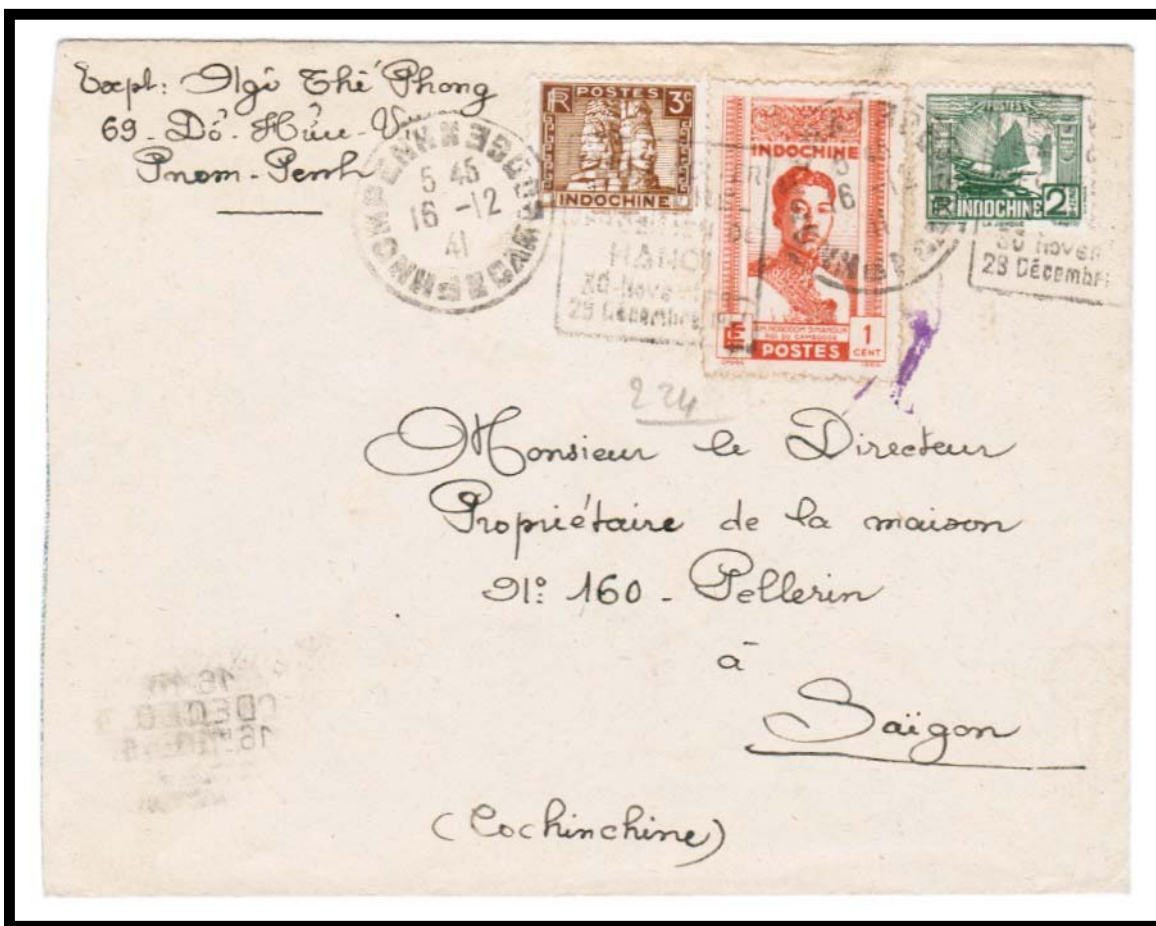 Expt: Ngô Thê Phong
69 - Dô - Hữu - Vị
Pnom-Penh
PNOMPENH CAMBODGE
5 45
16 -12
41
RF POSTES 3c
INDOCHINE
HANOI
30 Novembre
29 Décembre
INDOCHINE
S.M. NORODOM SIHANOUK
ROI DU CAMBODGE
POSTES
1
CENT
POSTES
RF INDOCHINE 2
CENTS
30 Novem
29 Décembre
224
Monsieur le Directeur
Propriétaire de la maison
No: 160 - Pellerin
à
Saïgon
(Cochinchine)